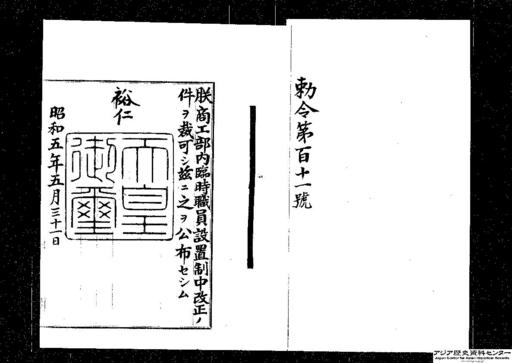 勅令第百十一號
朕商工部内臨時職員設置制中改正ノ
件ヲ裁可シ茲ニ之ヲ公布セシム
裕仁
天皇
御璽
昭和五年五月三十一日
アジア歴史資料センター
Japan Center for Asian Historical Records